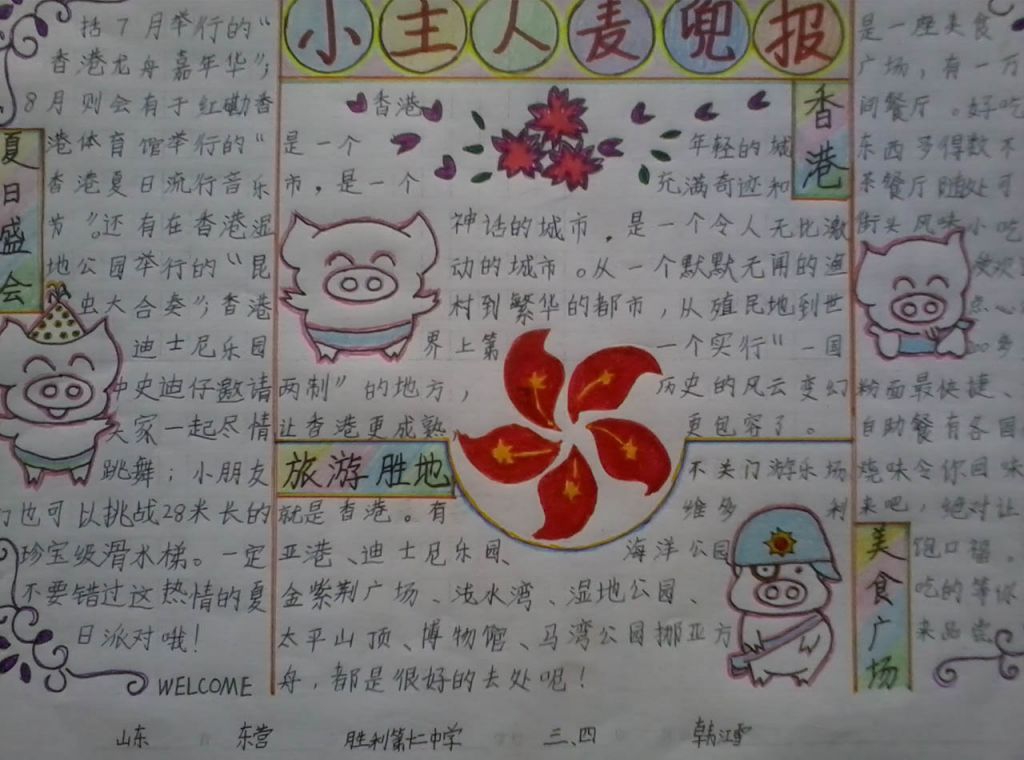 小主人麦兜报
括7月举行的“
香港龙舟嘉年华”;
8月则会有于红磡香
港体育馆举行的“
香港夏日流行音乐
节”。还有在香港湿
地公园举行的“昆
虫大合奏”;香港
迪士尼乐园
史迪仔邀请
大家一起尽情
跳舞;小朋友
们也可以挑战28米长的
珍宝级滑水梯。一定
不要错过这热情的夏
日派对哦!
WELCOME
夏日盛会
香港
香港
是一个年轻的城
市,是一个充满奇迹和
神话的城市,是一个令人无比激
动的城市。从一个默默无闻的渔
村到繁华的都市,从殖民地到世
界上第一个实行“一国
两制”的地方,历史的风云变幻
让香港更成熟,更包容了。
旅游胜地
不关门游乐场
就是香港。有维多利
亚港、迪士尼乐园、海洋公园
金紫荆广场、浅水湾、湿地公园、
太平山顶、博物馆、马湾公园挪亚方
舟,都是很好的去处呢!
是一座美食
广场,有一万
间餐厅。好吃
东西多得数不
茶餐厅随处可
街头风味小吃
点心
粉面最快捷、
自助餐有各国
烧味令你回味
来吧,绝对让
饱口福。
吃的等你
来品尝
美食广场
山东 东营 胜利第仁中学 三、四 韩江雪